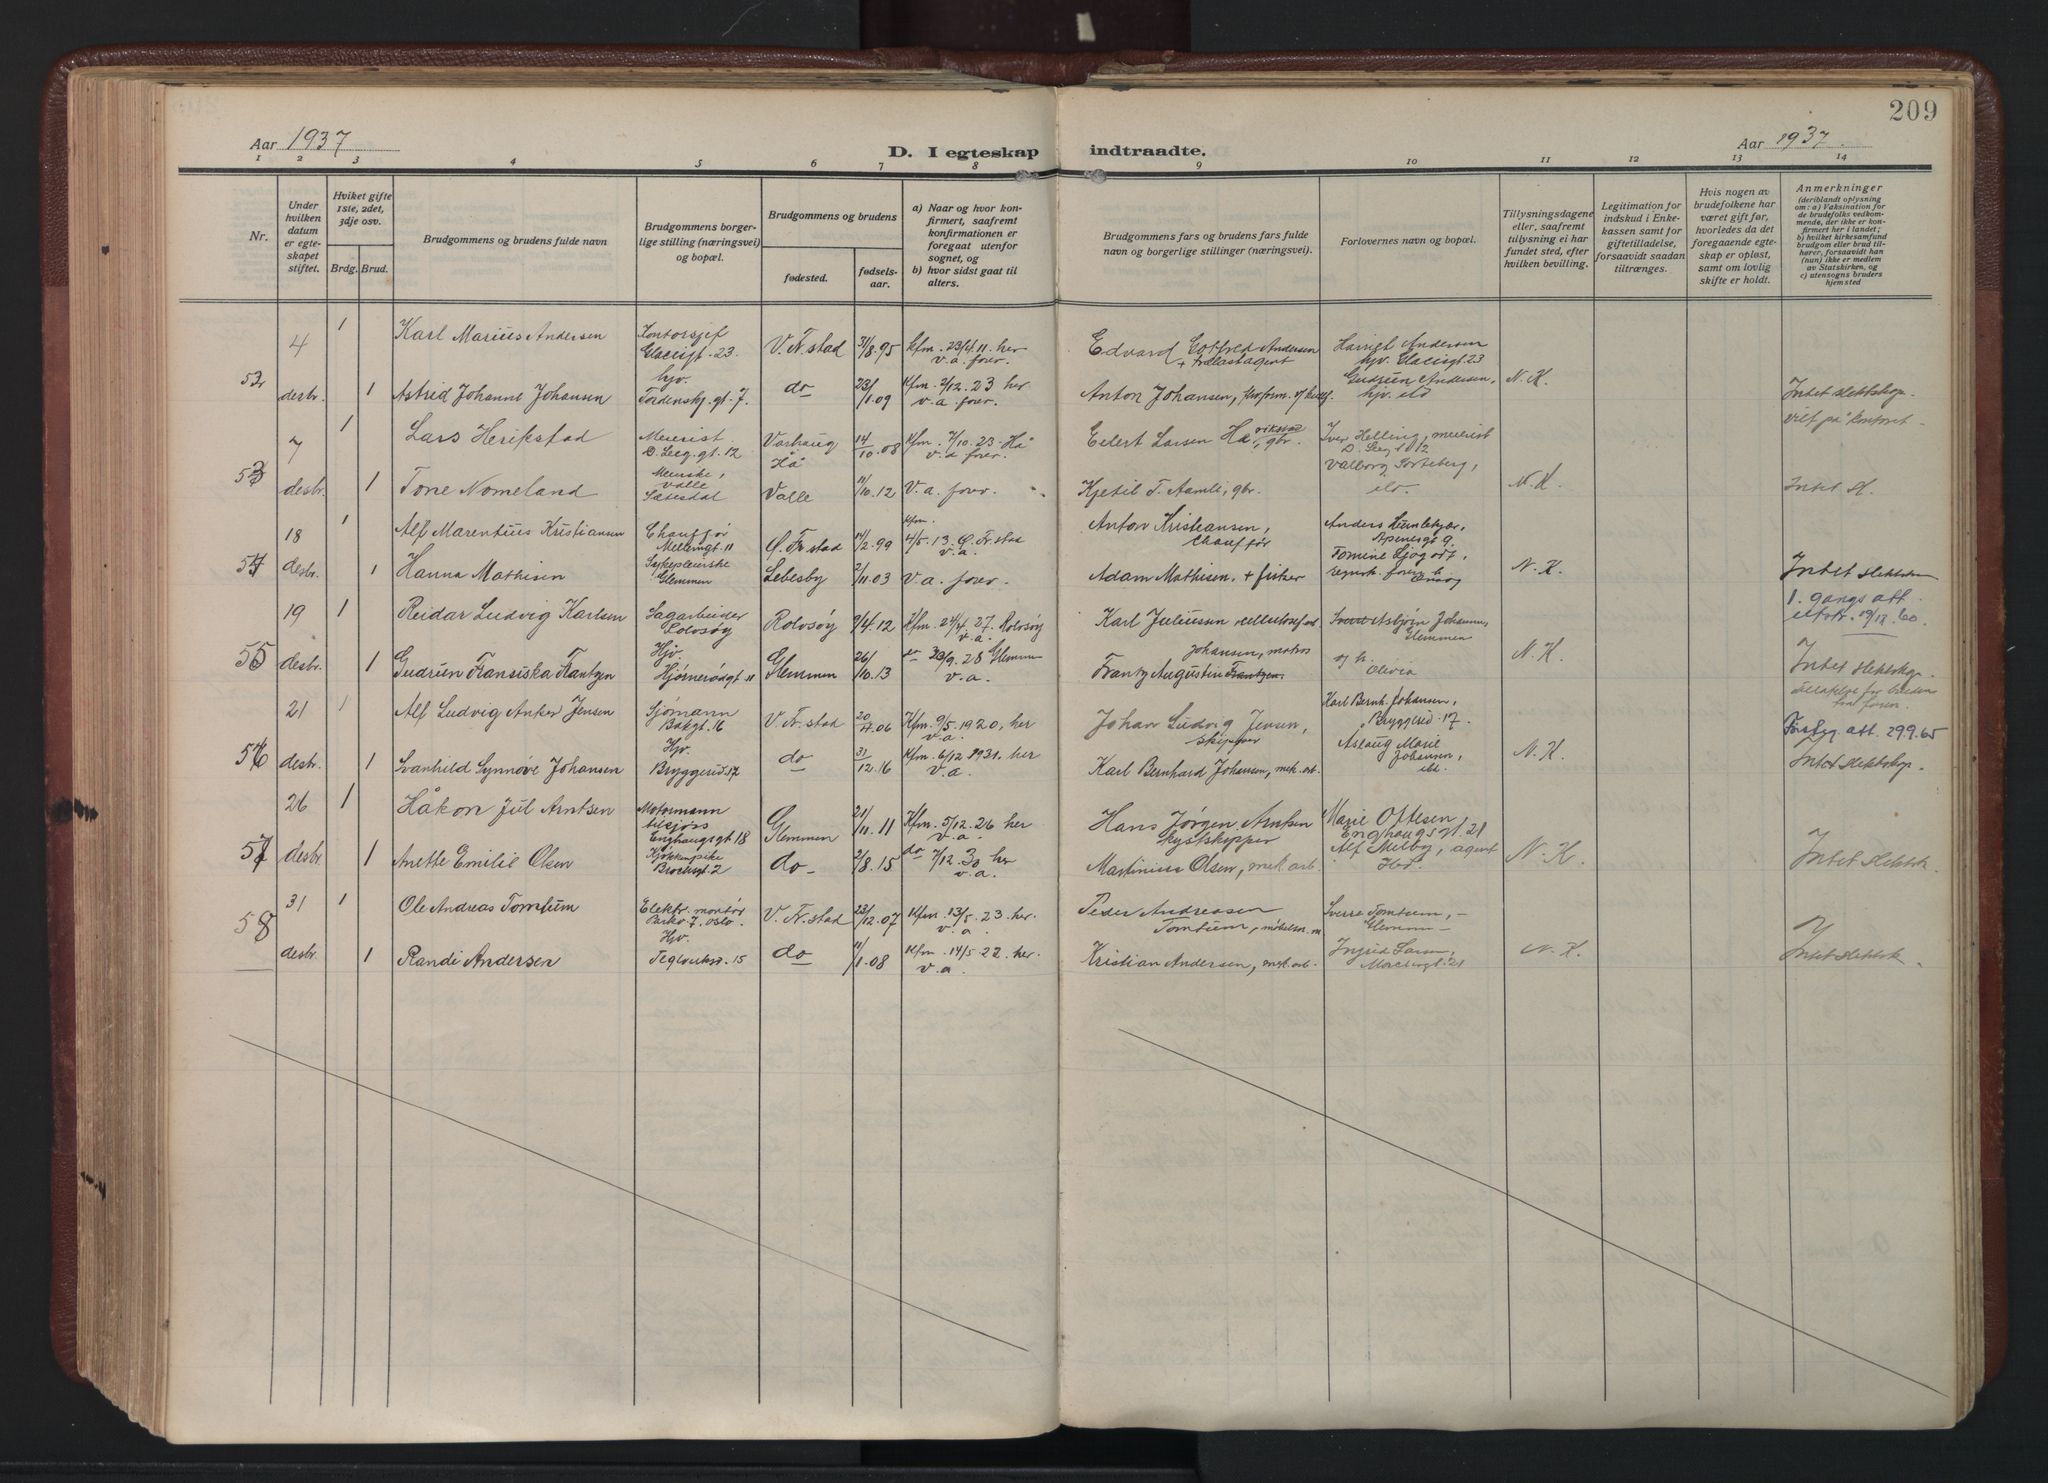 209
Aar 1937
D. I egteskap indtraadte.
Aar 1937
1 2 3 4 5 6 7 8 9 10 11 12 13 14
Nr.
Under hvilken datum er egteskapet stiftet.
Hvilket gifte 1ste, 2det, 3dje osv.
Brdg. Brud.
Brudgommens og brudens fulde navn
Brudgommens borgerlige stilling (næringsvei) og bopæl.
Brudgommens og brudens
fødested.
fødselsaar.
a) Naar og hvor konfirmert, saafremt konfirmationen er foregaat utenfor sognet, og
b) hvor sidst gaat til alters.
Brudgommens fars og brudens fars fulde navn og borgerlige stillinger (næringsvei).
Forlovernes navn og bopæl.
Tillysningsdagene eller, saafremt tillysning ei har fundet sted, efter hvilken bevilling.
Legitimation for indskud i Enkekassen samt for giftetilladelse, forsaavidt saadan tiltrænges.
Hvis nogen av brudefolkene har været gift før, hvorledes da det foregaaende egteskap er opløst, samt om lovlig skifte er holdt.
Anmerkninger
(deriblandt oplysning om: a) Vaksination for de brudefolks vedkommende, der ikke er konfirmert her i landet; b) hvilket kirkesamfund brudgom eller brud tilhører, forsaavidt han (hun) ikke er medlem av Statskirken, og c) utensogns bruders hjemsted
4 1 Karl Marius Andersen Kontorsjef Glacisgt. 23. V. Fr.stad 31/8.95 Kfm. 23/4.11. her v.a. forer. Edvard Gotfred Andersen + trælastagent Harriet Andersen hjv. Glacisgt. 23
52 desbr. 1 Astrid Johanne Johansen hjv. Tordenskj.gt. 7. do 23/1.09 Kfm. 2/12. 23 her v.a. forer. Anton Johansen, Gudrun Andersen, hjv. N. K.
7 1 Lars Herikstad Meierist. gt. 12 Varhaug Hå 14/10.08 Kfm. 7/10. 23. Hå v.a. forer. Eilert Larsen gbr. Iver Helling, meierist
53 desbr. 1 Tone Nomeland Valle Sætesdal Valle 11/10.12 v.a. forer. Kjetil T. Aamli, gbr. Valborg N. K.
18 1 Alf Marentius Kristiansen Chauffør Mellemgt 11 Ø. Fr.stad 14/2.99 Kfm. 4/5. 13. Ø. Fr.stad v.a. Anton Kristiansen, chauffør Anders
54 desbr. 1 Hanna Mathisen Sykepleierske Glemmen Lebesby 2/11.03 v.a. forer. Adam Mathisen, + fisker N. K.
19 1 Reidar Ludvig Karlsen Sagarbeider Rolvsøy 9/4.12 Kfm. 24/4. 27. Rolvsøy v.a. Karl Juliussen Asbjørn Johansen, Glemmen 1. gangs att.
55 desbr. 1 Gudrun Fransiska Frantzen Hjv. Hjørnerødgt 11 Glemmen 26/10.13 do 30/9. 28 Glemmen v.a. Frantz Augustin Frantzen Johansen, matros og h. Olivia N. K.
21 1 Alf Ludvig Anker Jensen Sjømann Bakgt. 16 V. Fr.stad 20/4.06 Kfm. 9/5.1920, her v.a. Johan Ludvig Jensen, skipper Karl Bernh. Johansen, Bryggerid. 17.
56 desbr. 1 Svanhild Synnøve Johansen Hjv. Bryggerid. 17 do 31/12.16 Kfm. 6/12 1931. her v.a. Karl Bernhard Johansen, mek. arb. Aslaug Marie Johansen, N. K. att. 29.9.65
26 1 Håkon Jul Arntsen Motormann tilsjøss Enghaugsgt 18 Glemmen 21/11.11 Kfm. 5/12. 26 her v.a. Hans Jørgen Arntsen kystskipper Marie Oftesen Enghaugsgt. 21
57 desbr. 1 Anette Emilie Olsen Kjøkkenpike Brochsgt. 2 do 2/8.15 do 7/12. 30 her v.a. Martinius Olsen, mek. arb. Alf Melby, agent N. K.
31 1 Ole Andreas Tomtum Elektr. montør Oslo. V. Fr.stad 23/12.07 Kfm. 13/5. 23. her. v.a. Peder Andreasen Tomtum, Sverre Tomtum, Glemmen
58 desbr. 1 Randi Andersen Hjv. Teglverksv. 15 do 11/1.08 Kfm. 14/5. 22. her. v.a. Kristian Andersen, mek. arb. Ingrid Larsen, N. K.